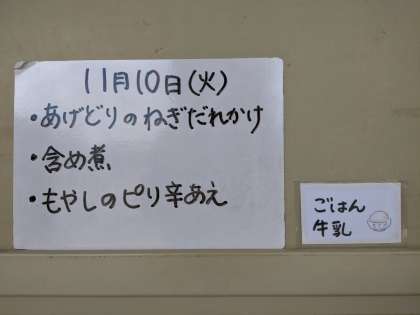 11月10日(火)
・あげどりのねぎだれかけ
・含め煮
・もやしのピリ辛あえ
ごはん
牛乳